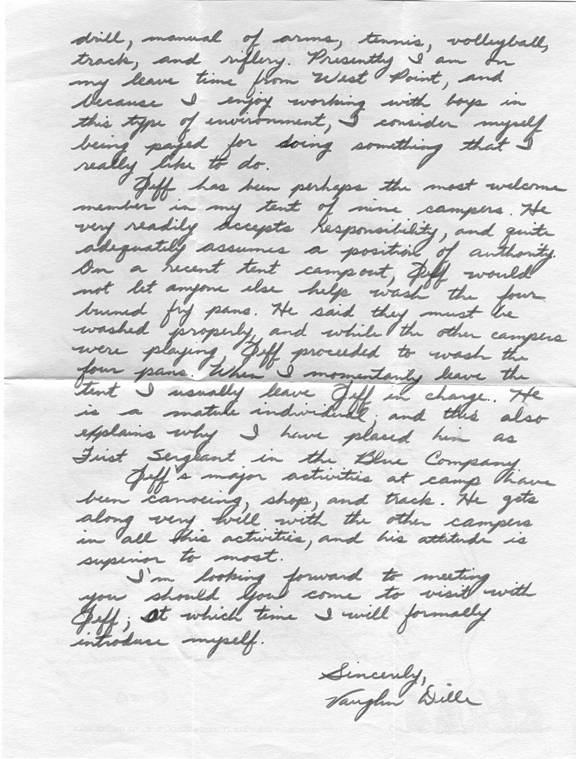 drill, manual of arms, tennis, volleyball,
track, and riflery. Presently I am on
my leave time from West Point, and
because I enjoy working with boys in
this type of environment, I consider myself
being payed for doing something that I
really like to do.
Jeff has been perhaps the most welcome
member in my tent of nine campers. He
very readily accepts responsibility, and quite
adequately assumes a position of authority.
On a recent tent campout, Jeff would
not let anyone else help wash the four
burned fry pans. He said they must be
washed properly, and while the other campers
were playing Jeff proceeded to wash the
four pans. When I momentarily leave the
tent I usually leave Jeff in charge. He
is a mature individual, and this also
explains why I have placed him as
First Sergeant in the Blue Company.
Jeff's major activities at camp have
been canoeing, shop, and track. He gets
along very well with the other campers
in all his activities, and his attitude is
superior to most.
I'm looking forward to meeting
you should you come to visit with
Jeff; at which time I will formally
introduce myself.
Sincerely,
Vaughn Dille